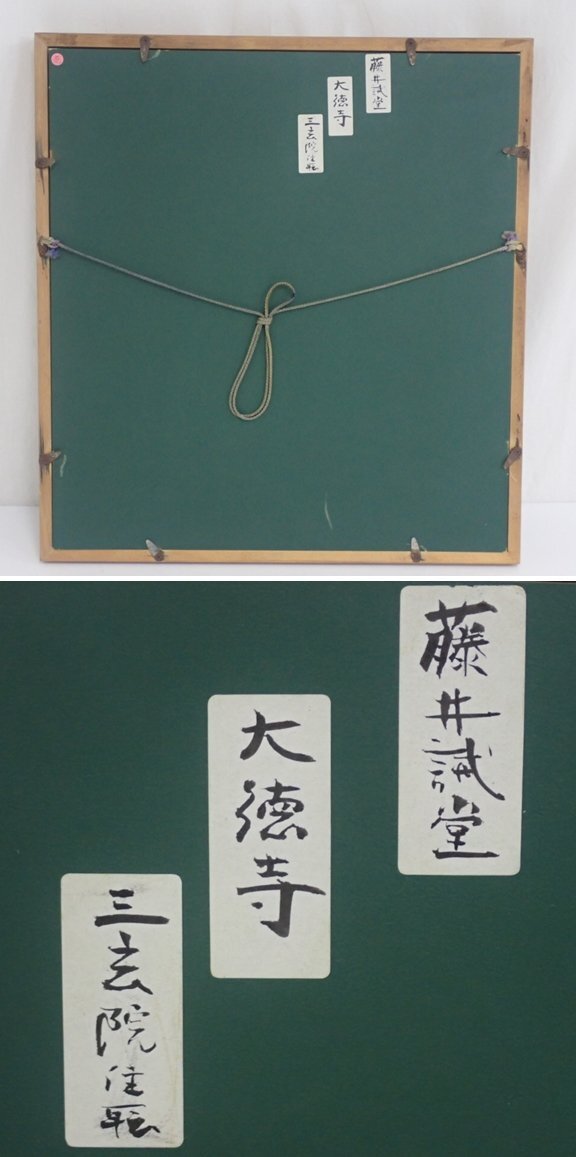 藤井誡堂
大徳寺
三玄院住耺
藤井誡堂
大徳寺
三玄院住耺